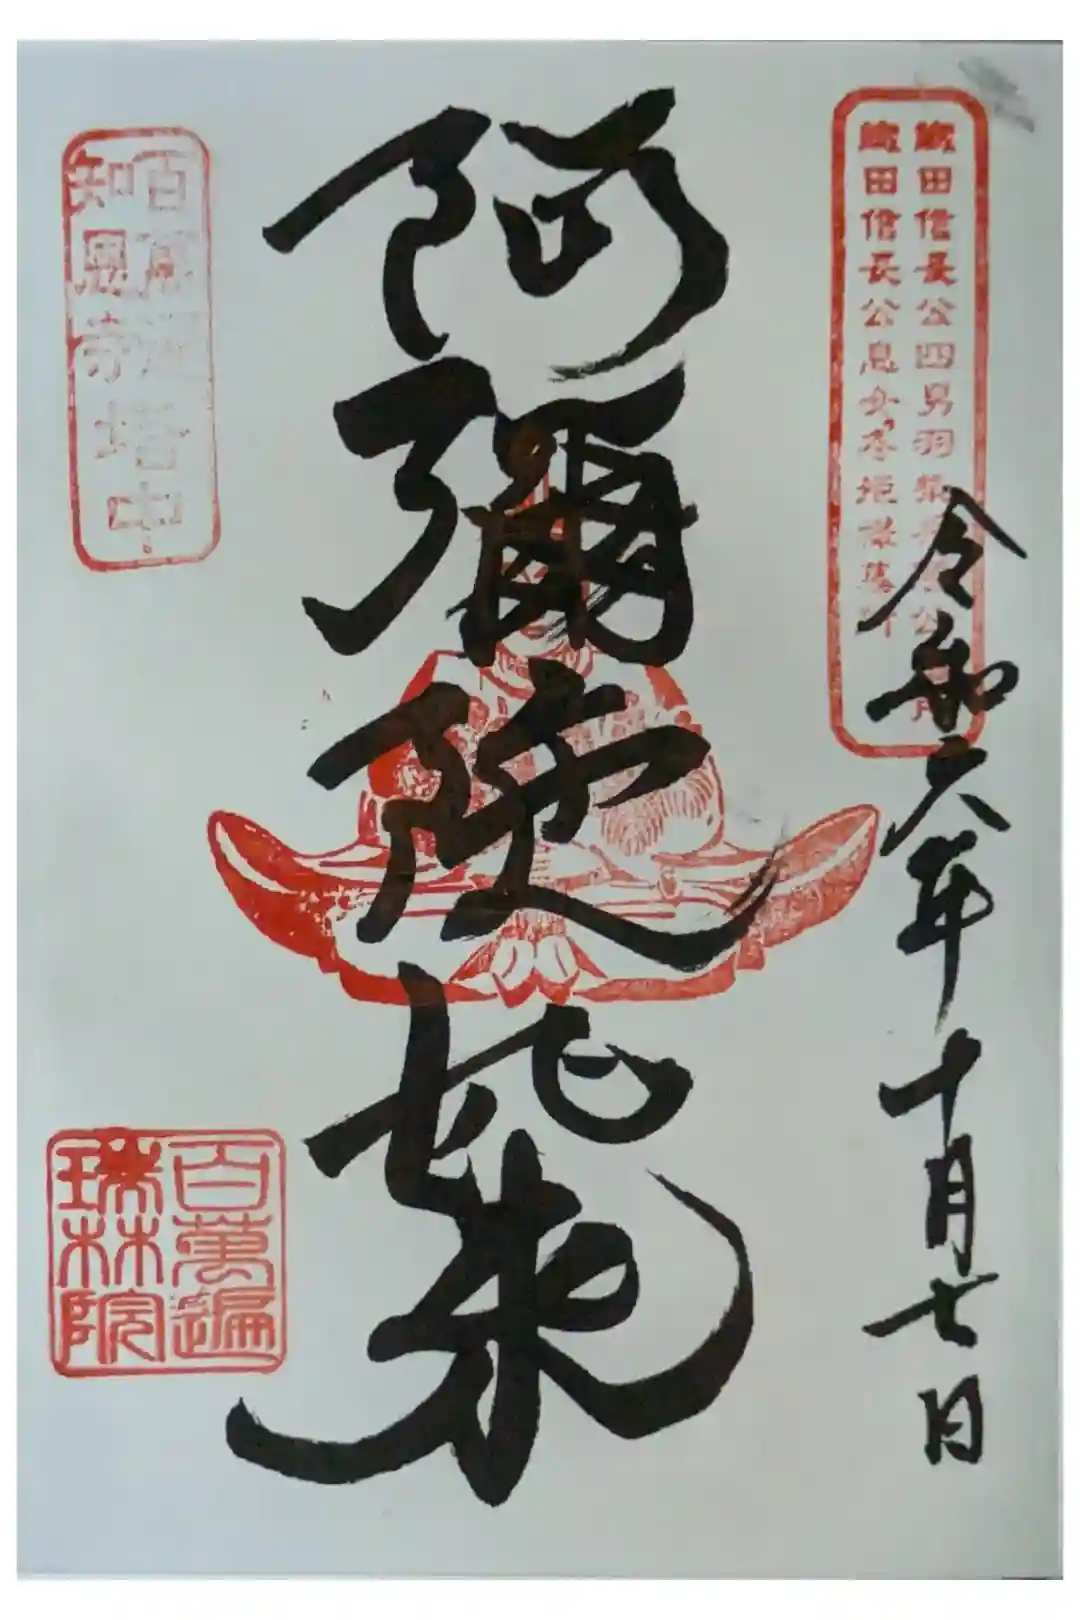 織田信長公四男羽柴秀勝公墓所
織田信長公息女冬姫様墓所
令和六年十月七日
阿彌陀如来
百萬遍
知恩寺
塔中
百萬遍
瑞林院